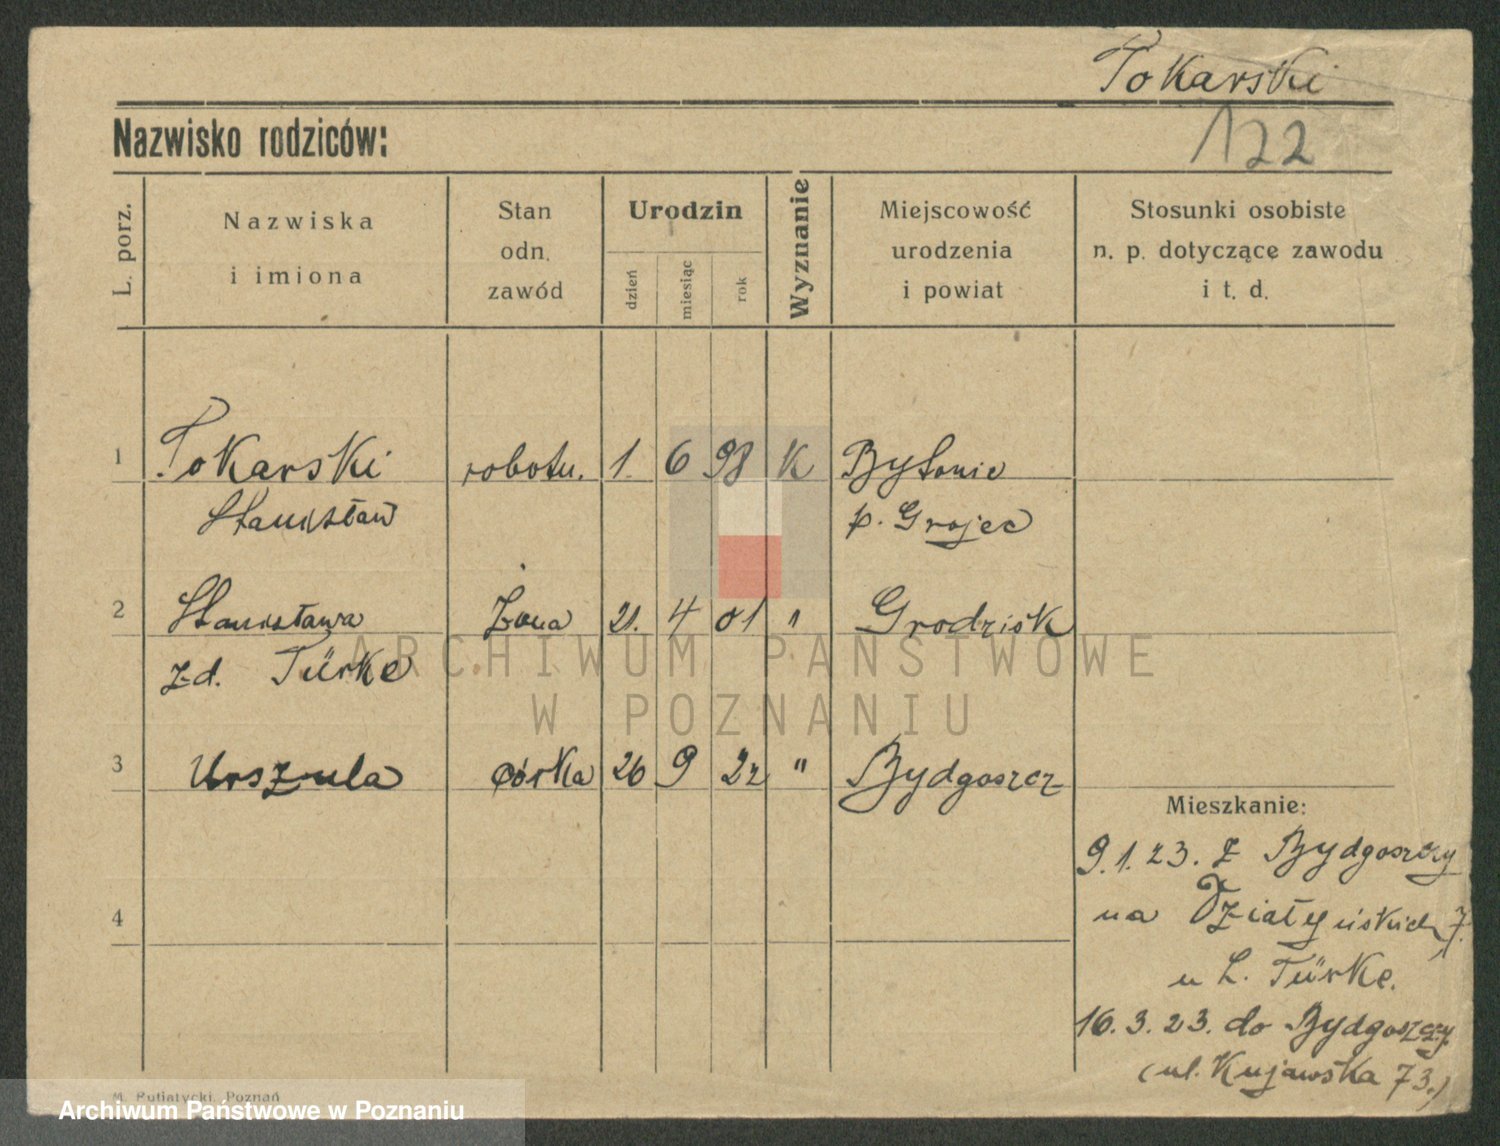 Tokarski
Nazwisko rodziców:
122
L. porz.
Nazwiska
i imiona
Stan
odn.
zawód
Urodzin
dzień
miesiąc
rok
Wyznanie
Miejscowość
urodzenia
i powiat
Stosunki osobiste
n. p. dotyczące zawodu
i t. d.
1 Tokarski robotn. 1. 6 98 K Bytonie
Stanisław p. Grojec
2 Stanisława Żona 21. 4 01 " Grodzisk
zd. Türke
3 Urszula córka 26 9 22 " Bydgoszcz
Mieszkanie:
9.1.23. z Bydgoszczy
4 na Działyńskich 7.
u L. Türke.
16.3.23. do Bydgoszczy
(ul. Kujawska 73.)
M. Putiatycki, Poznań
ARCHIWUM PAŃSTWOWE
W POZNANIU
Archiwum Państwowe w Poznaniu